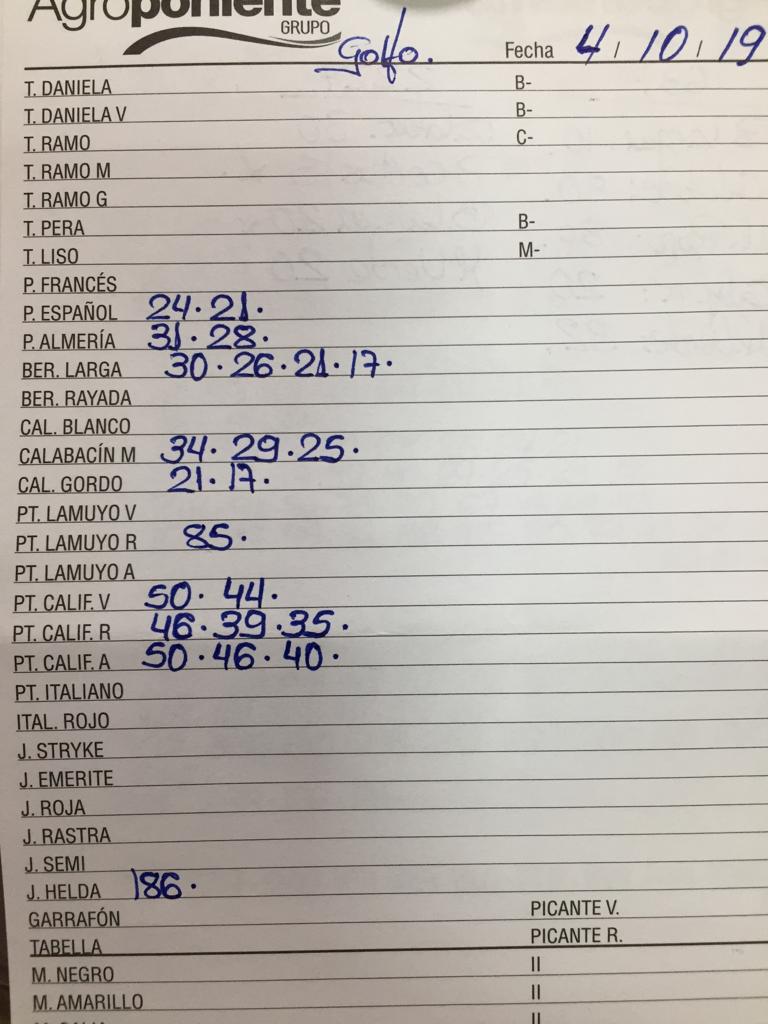 Agroponiente
GRUPO
Golfo. Fecha 4 / 10 / 19
T. DANIELA B-
T. DANIELA V B-
T. RAMO C-
T. RAMO M
T. RAMO G
T. PERA B-
T. LISO M-
P. FRANCÉS
P. ESPAÑOL 24. 21.
P. ALMERÍA 31. 28.
BER. LARGA 30. 26. 21. 17.
BER. RAYADA
CAL. BLANCO
CALABACÍN M 34. 29. 25.
CAL. GORDO 21. 17.
PT. LAMUYO V
PT. LAMUYO R 85.
PT. LAMUYO A
PT. CALIF. V 50. 44.
PT. CALIF. R 46. 39. 35.
PT. CALIF. A 50. 46. 40.
PT. ITALIANO
ITAL. ROJO
J. STRYKE
J. EMERITE
J. ROJA
J. RASTRA
J. SEMI
J. HELDA 186.
GARRAFÓN PICANTE V.
TABELLA PICANTE R.
M. NEGRO II
M. AMARILLO II
II